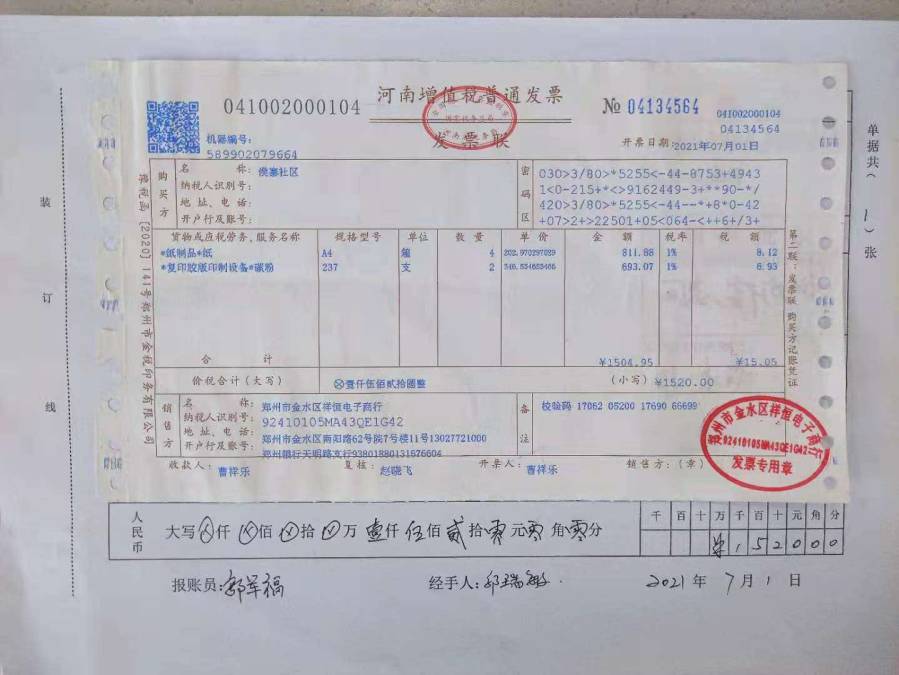 041002000104
河南增值税普通发票
发票联
№ 04134564
041002000104
04134564
机器编号:
589902079664
开票日期: 2021年07月01日
单据共(1)张
装
订
线
购买方
名 称: 侯寨社区
纳税人识别号:
地 址、电 话:
开户行及账号:
密码区
030>3/80>*5255<-44-8753+4943
1<0-215+*<>9162449-3+**90-*/
420>3/80>*5255<-44--*+8*0-42
+07>2+>22501+05<064-<++6+/3+
货物或应税劳务、服务名称 规格型号 单位 数 量 单 价 金 额 税率 税 额
*纸制品*纸 A4 箱 4 202.970297029 811.88 1% 8.12
*复印胶版印制设备*碳粉 237 支 2 346.534653465 693.07 1% 6.93
合 计 ¥1504.95 ¥15.05
价税合计(大写) ⊗壹仟伍佰贰拾圆整 (小写) ¥1520.00
销售方
名 称: 郑州市金水区祥恒电子商行
纳税人识别号: 92410105MA43QE1G42
地 址、电 话: 郑州市金水区南阳路62号院7号楼11号13027721000
开户行及账号: 郑州银行天明路支行93801880131676604
备注
校验码 17062 05200 17690 66699
收款人: 曹祥乐 复核: 赵晓飞 开票人: 曹祥乐 销售方:(章)
第二联:发票联 购买方记账凭证
郑州市金水区祥恒电子商行
92410105MA43QE1G42
发票专用章
人民币
大写 仟 佰 拾 万 壹仟 伍佰 贰拾 零元 零角 零分
千 百 十 万 千 百 十 元 角 分
1 5 2 0 0 0
报账员: 郭军福 经手人: 2021年 7月 1日